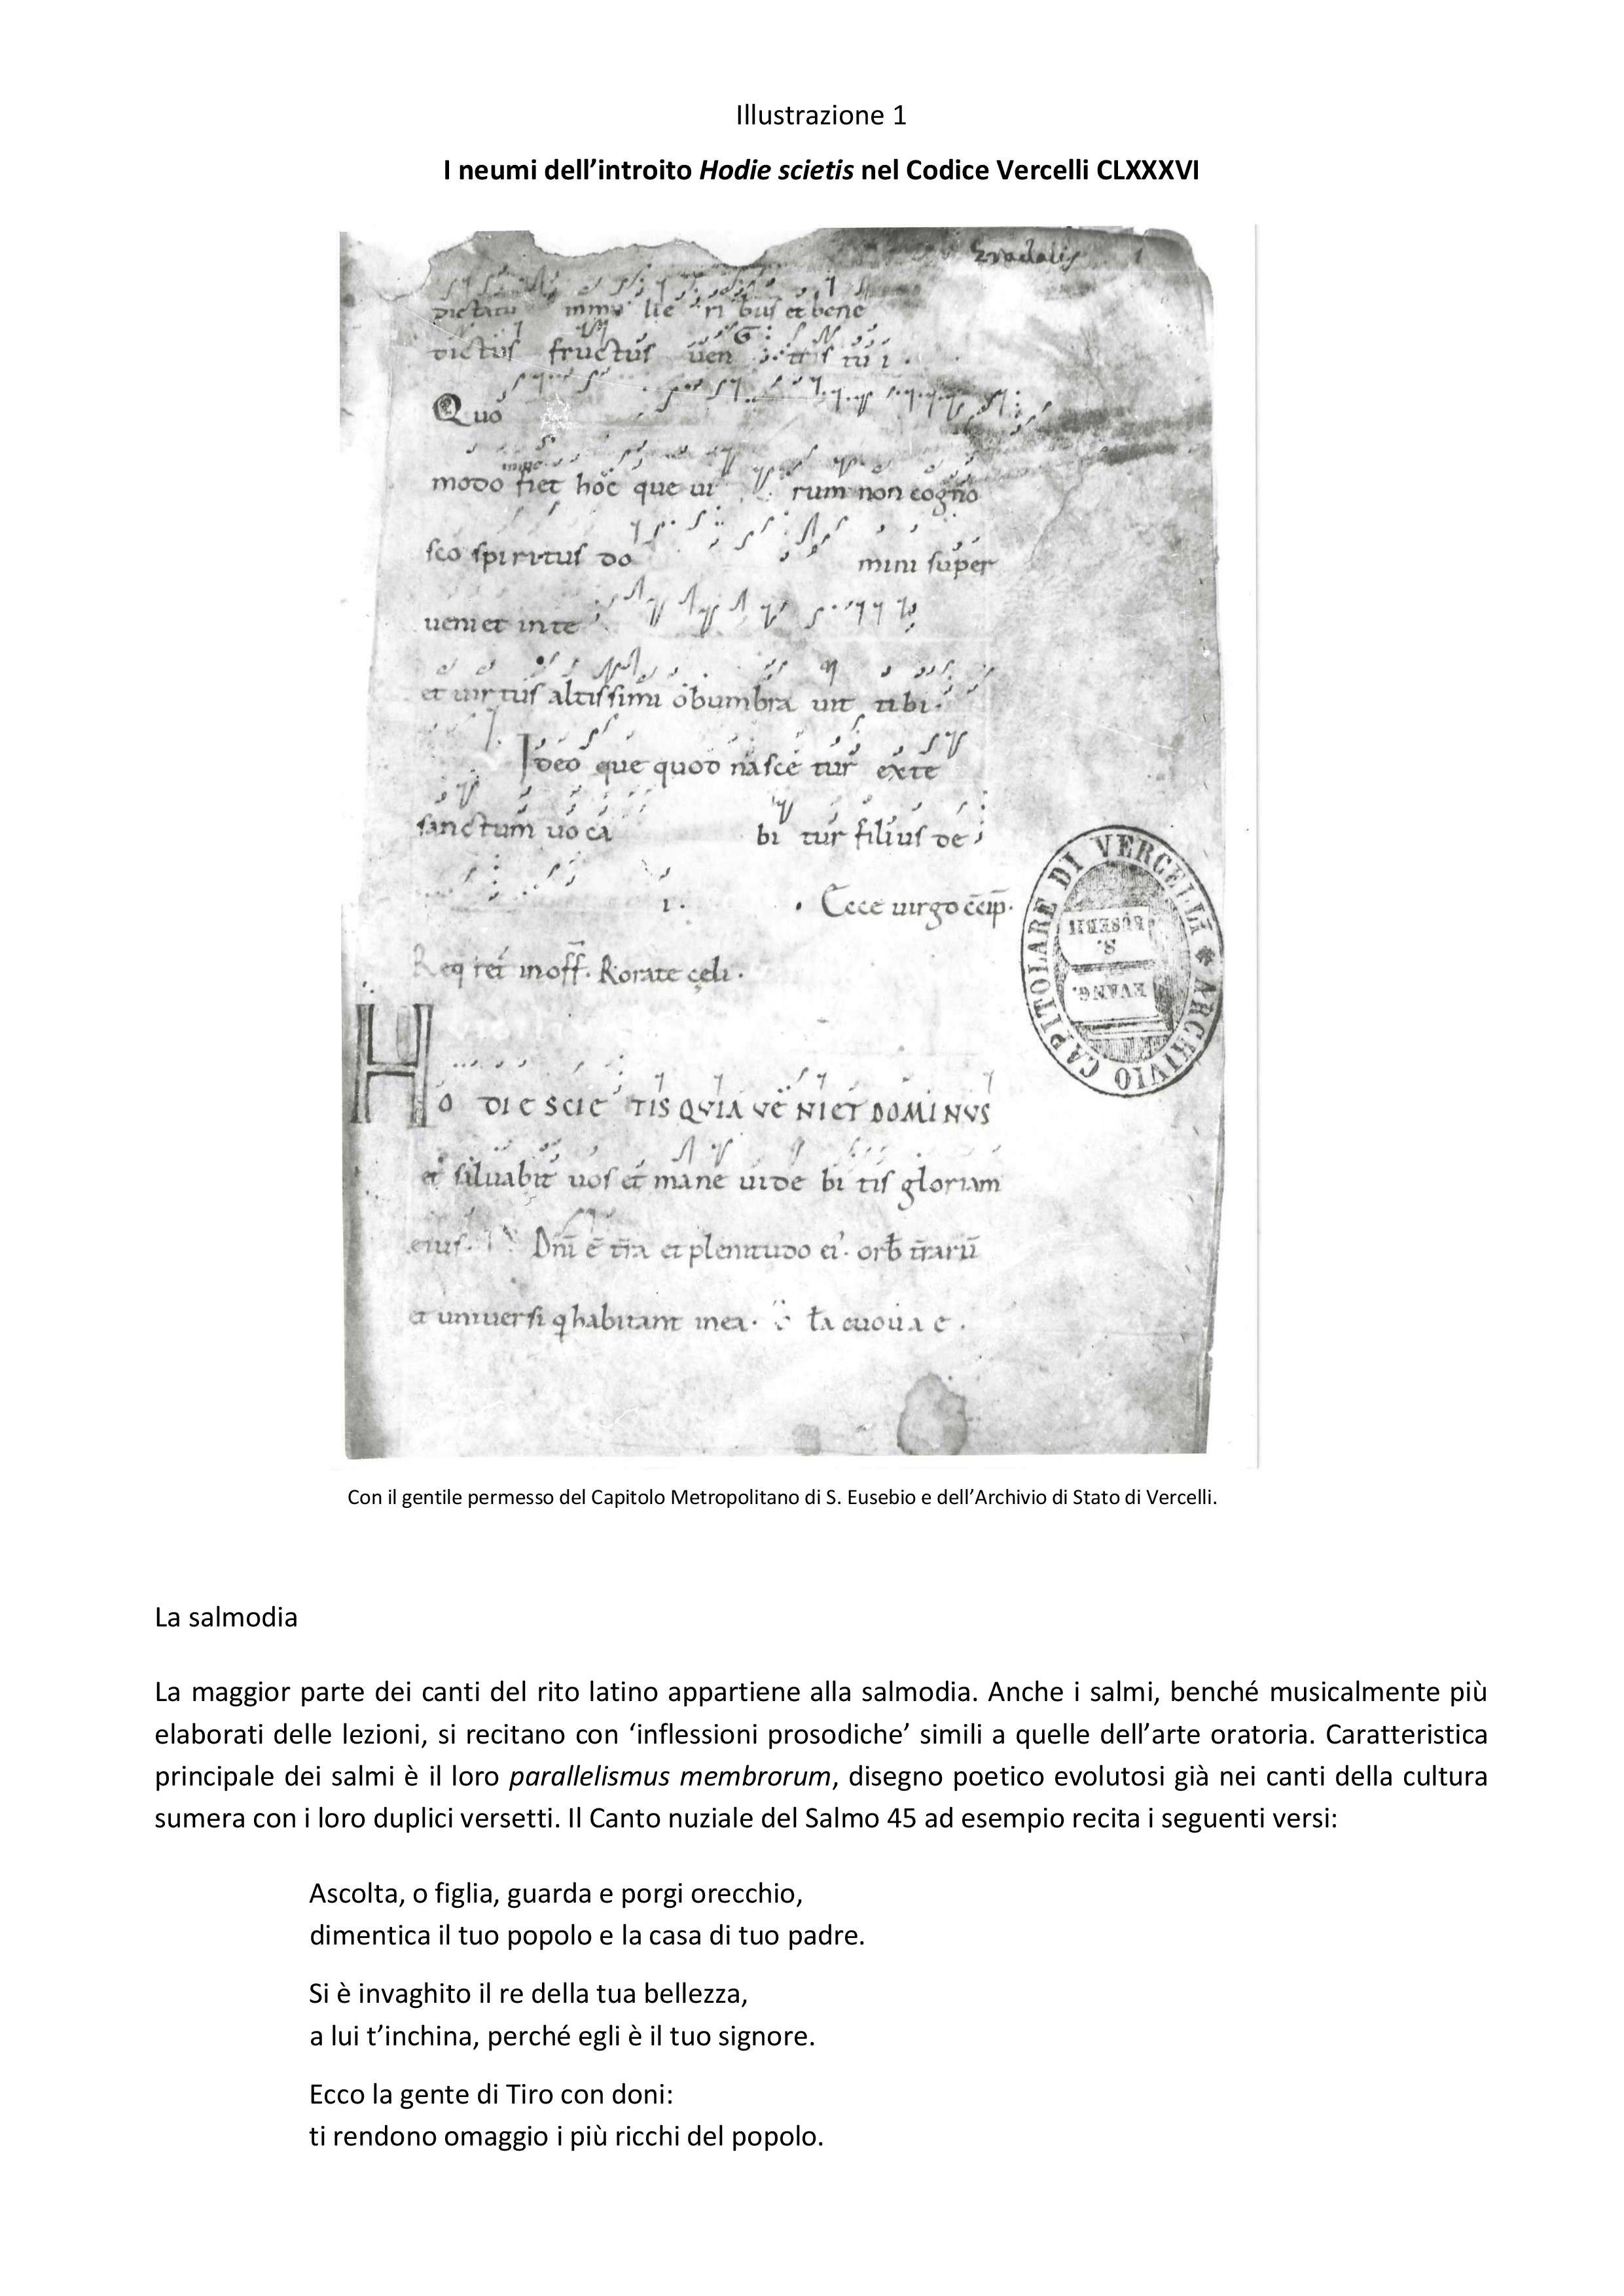 Illustrazione 1
I neumi dell’introito Hodie scietis nel Codice Vercelli CLXXXVI
Gradalis 1
dictatu inmu lie ri bus et bene
dictus fructus uen tris tu i .
Quo
modo fiet hoc que ui rum non cogno
sco spiritus do mini super
ueniet in te
et uirtus altissimi obumbra uit tibi.
Ideo que quod nasce tur exte
sanctum uo ca bi tur filius de
i . Ecce uirgo c̄cip̄.
Req ret in off̄. Rorate celi .
HO DIE SCIE TIS QVIA VE NIET DOMINVS
et saluabit uos et mane uide bi tis gloriam
eius. Dn̄i ē t̄ra et plenitudo ei. orb t̄rarū
et uniuersi q habitant in ea. euouae .
ARCHIVIO CAPITOLARE DI VERCELLI
S. EUSEBII
EVANG.
Con il gentile permesso del Capitolo Metropolitano di S. Eusebio e dell’Archivio di Stato di Vercelli.
La salmodia
La maggior parte dei canti del rito latino appartiene alla salmodia. Anche i salmi, benché musicalmente più
elaborati delle lezioni, si recitano con ‘inflessioni prosodiche’ simili a quelle dell’arte oratoria. Caratteristica
principale dei salmi è il loro parallelismus membrorum, disegno poetico evolutosi già nei canti della cultura
sumera con i loro duplici versetti. Il Canto nuziale del Salmo 45 ad esempio recita i seguenti versi:
Ascolta, o figlia, guarda e porgi orecchio,
dimentica il tuo popolo e la casa di tuo padre.
Si è invaghito il re della tua bellezza,
a lui t’inchina, perché egli è il tuo signore.
Ecco la gente di Tiro con doni:
ti rendono omaggio i più ricchi del popolo.